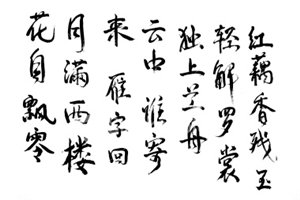 红藕香残玉
轻解罗裳
独上兰舟
云中谁寄
来雁字回
月满西楼
花自飘零